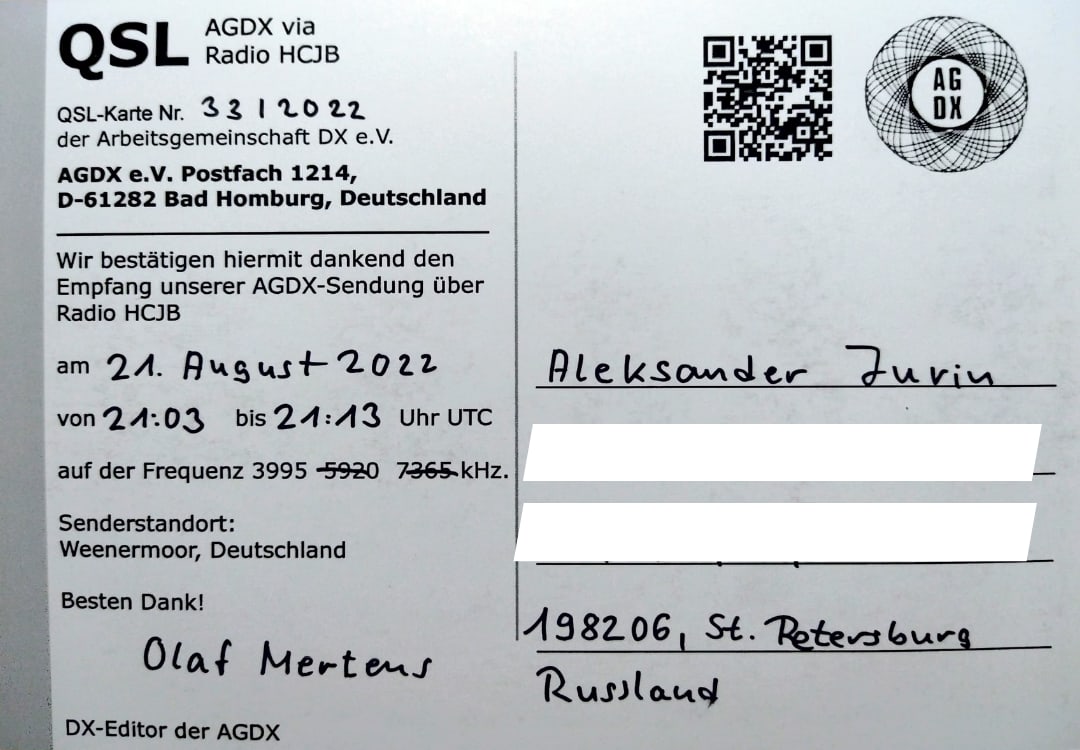 QSL AGDX via
Radio HCJB
QSL-Karte Nr. 33 | 2022
der Arbeitsgemeinschaft DX e.V.
AGDX e.V. Postfach 1214,
D-61282 Bad Homburg, Deutschland
Wir bestätigen hiermit dankend den
Empfang unserer AGDX-Sendung über
Radio HCJB
am 21. August 2022
von 21:03 bis 21:13 Uhr UTC
auf der Frequenz 3995 5920 7365 kHz.
Senderstandort:
Weenermoor, Deutschland
Besten Dank!
Olaf Mertens
DX-Editor der AGDX
AG
DX
Aleksander Jurin
198206, St. Petersburg
Russland